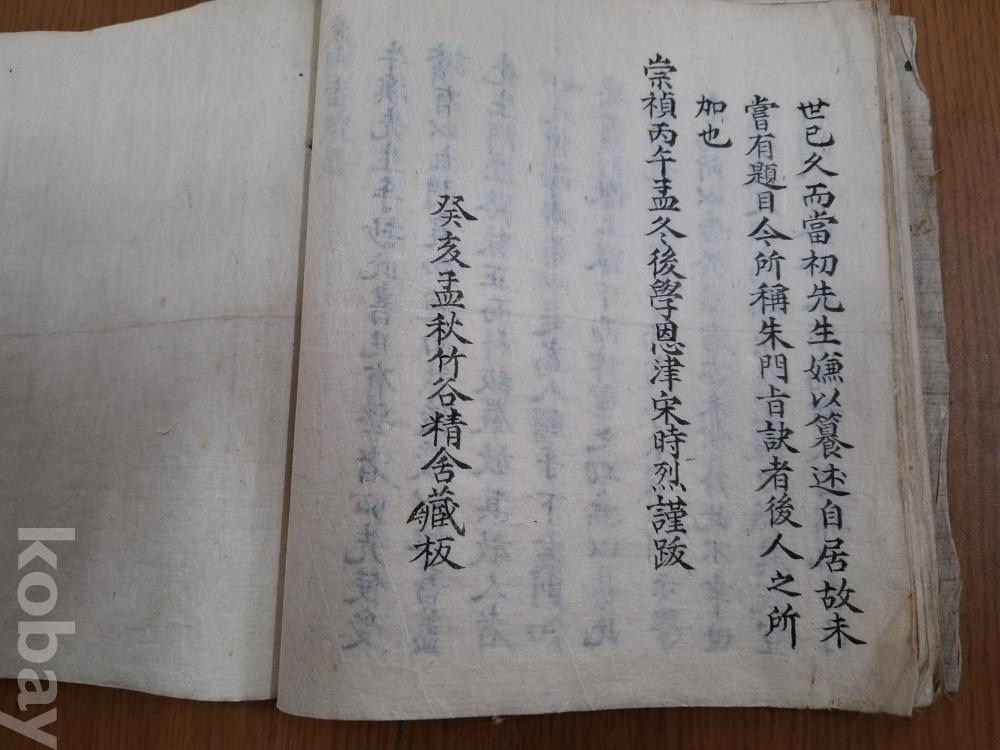 世已久而當初先生嫌以纂述自居故未
嘗有題目今所稱朱門旨訣者後人之所
加也
崇禎丙午孟冬後學恩津宋時烈謹跋
癸亥孟秋竹谷精舍藏板
kobay